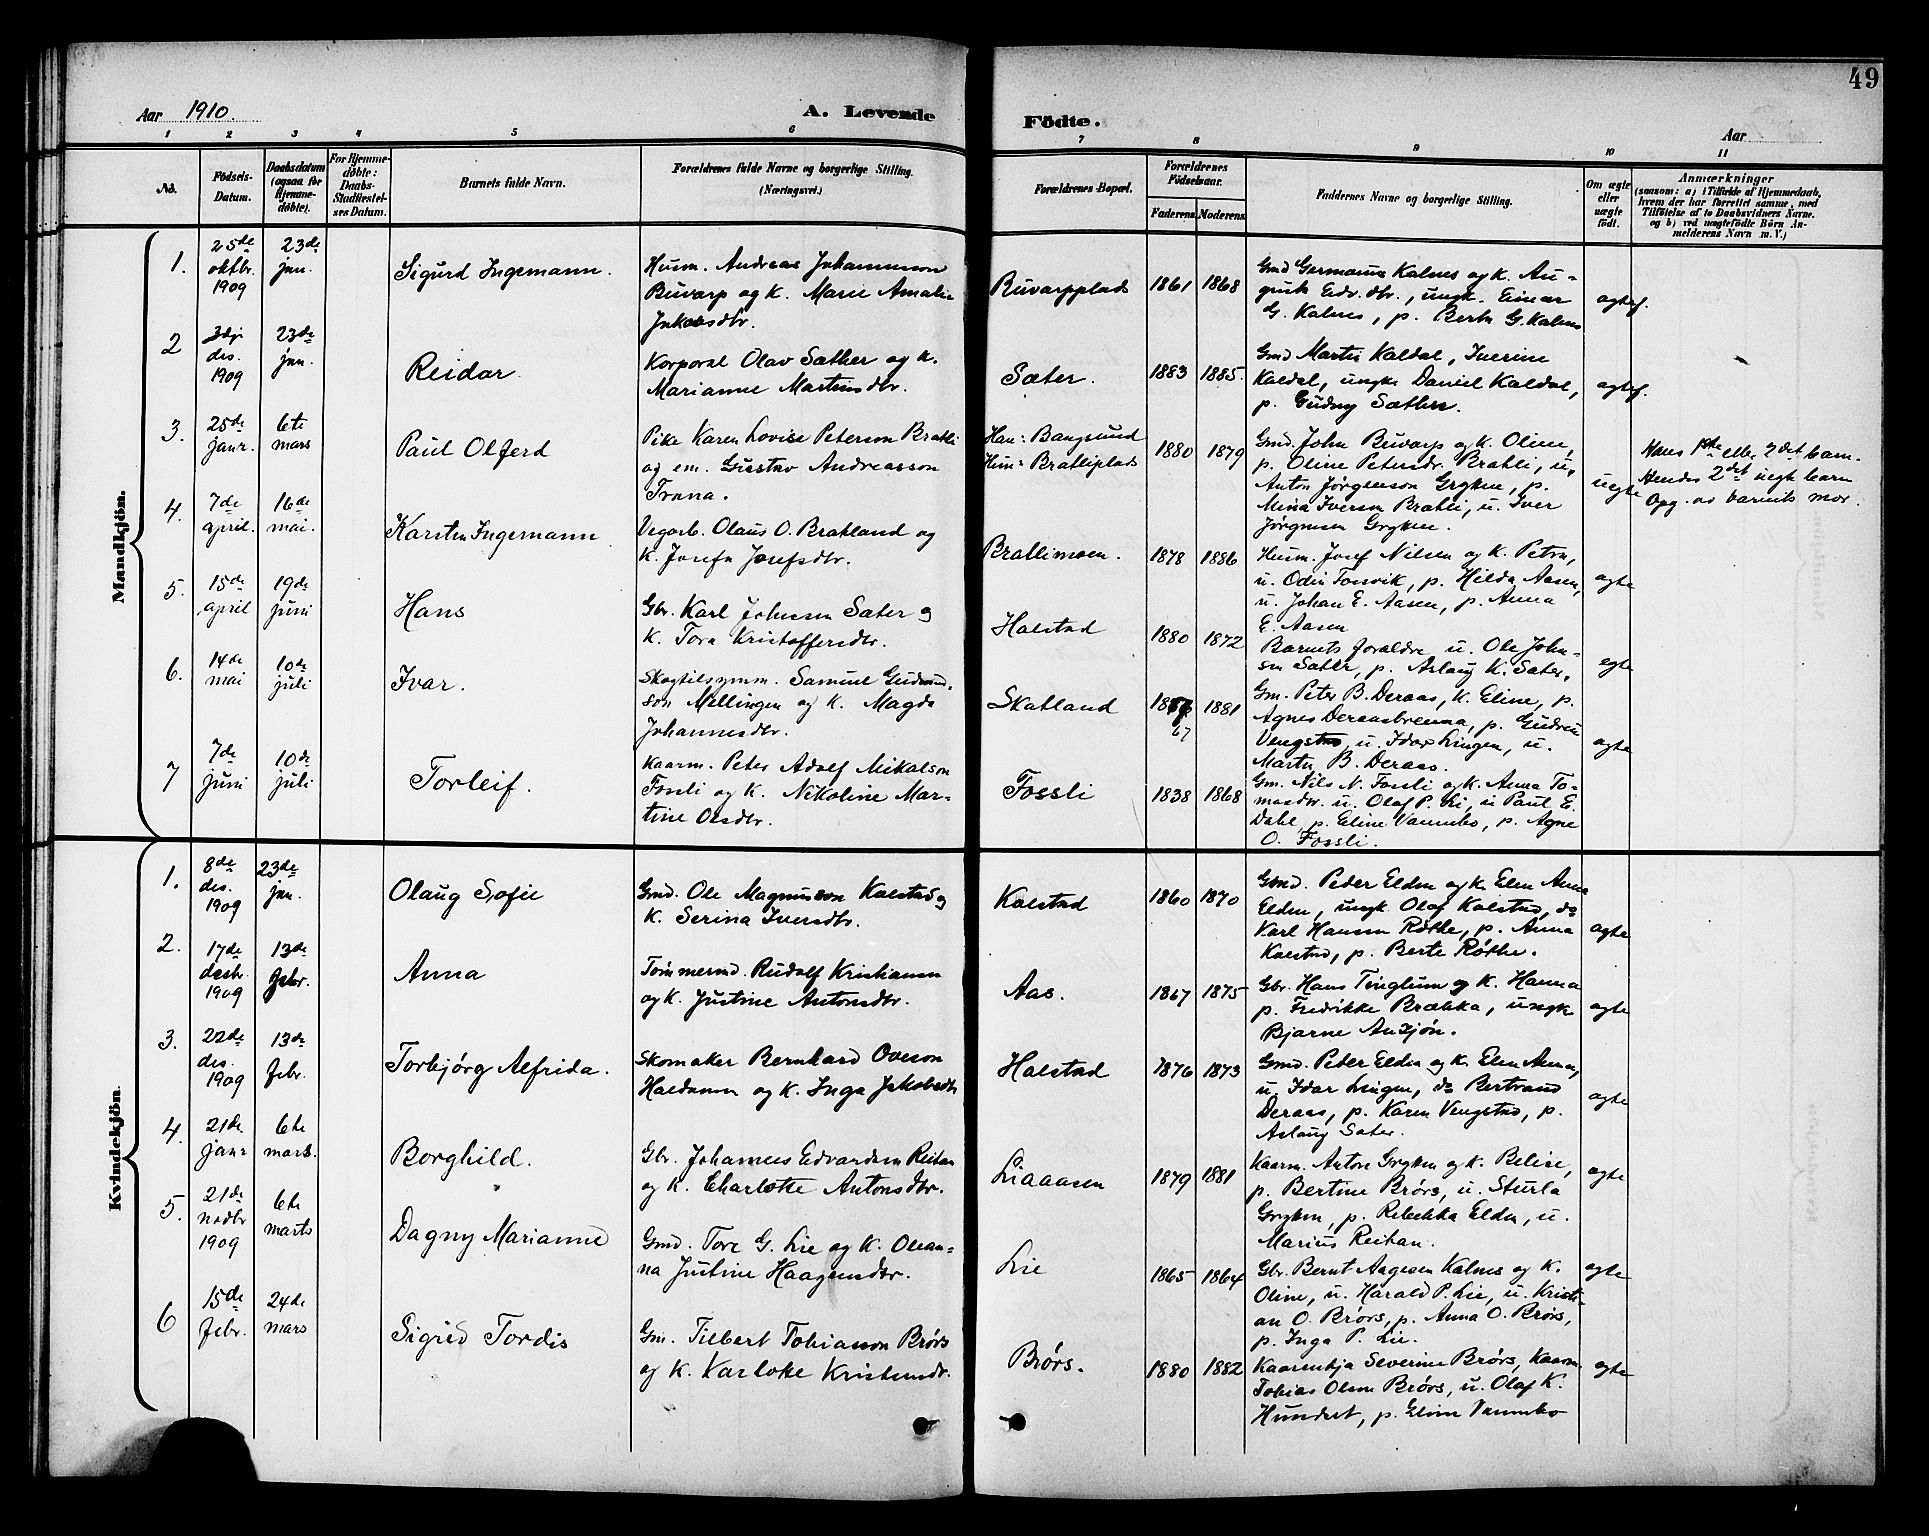 49
Aar 1910.
A. Levende Födte.
Aar
1 2 3 4 5 6 7 8 9 10 11
No.
Födsels-Datum.
Daabsdatum (ogsaa for Hjemmedöbte).
For Hjemmedöbte: Daabs-Stadfæstelses Datum.
Barnets fulde Navn.
Forældrenes fulde Navne og borgerlige Stilling.
(Næringsvei.)
Forældrenes Bopæl.
Forældrenes Födselsaar.
Faderens. Moderens.
Faddernes Navne og borgerlige Stilling.
Om ægte eller uægte födt.
Anmærkninger
(saasom: a) i Tilfælde af Hjemmedaab,
hvem der har forrettet samme, med
Tilföielse af to Daabsvidners Navne.
og b) ved uægtefödte Börn Anmelderens Navn m. V.)
Mandkjön.
1.
25de oktbr. 1909
23de jan.
Sigurd Ingemann.
Husm. Andreas Johannesson
Buvarp og k. Marie Amalie
Jakobsdtr.
Buvarpplads
1861 1868
Gmd Germanus Kalnes og k. Au-
gusta Edv.dtr., ungk. Einar
G. Kalnes, p. Berta G. Kalnes
2
3dje des. 1909
23de jan.
Reidar.
Korporal Olav Sæther og k.
Marianne Martinsdtr.
Sæter.
1883 1885.
Gmd Martin Kaldal, Iverine
Kaldal, ungk. Daniel Kaldal,
p. Gudny Sæther.
3.
25de janr.
6te mars
Paul Olferd
Pike Karen Lovise Peterson Bratli
og em. Gustav Andreasson
Trana.
Han: Bangsund
Hun: Bratliplads
1880 1879
Gmd. John Buvarp og k. Oline,
p. Oline Petersdr. Bratli, u.
Anton Jørgenson Gryten, p.
Mina Iverson Bratli, u. Iver
Jørgensen Gryten.
uegte
Hans 1ste elle 2det barn.
Hendes 2det uegte barn
Opg. av barnets mor.
4.
7de april.
16de mai.
Karsten Ingemann
Vegarb. Olaus O. Bratland og
k. Josefa Josefsdtr.
Bratlimoen.
1878 1886
Husm. Josef Nilsen og k. Petra,
u. Odin Fosvik, p. Hilda Aasen,
u. Johan E. Aasen, p. Anna
E. Aasen
ægte
5.
15de april
19de juni
Hans
Gbr. Karl Johnsen Sæter og
k. Tora Kristoffersdtr.
Halstad
1880 1872
Barnets forældre u. Ole John-
sen Sæter, p. Aslaug K. Sæter.
egte
6.
14de mai
10de juli
Ivar.
Skogtilsynsm. Samuel Gudmund-
son Mellingen og k. Magda
Johannesdtr.
Skatland
67 1881
Gm. Peter B. Deraas, k. Eline, p.
Agnes Deraasbrenna, p. Gudrun
Vengstad u. Idar Lingen, u.
Martin B. Deraas.
ægte
7
7de juni
10de juli
Torleif.
Kaarm. Peter Adolf Mikalson
Fossli og k. Nikoline Mar-
tine Olsdtr.
Fossli
1838 1868
Gm. Nils N. Fossli og k. Anna To-
masdtr. u. Olaf P. Li, u Paul E.
Dahl, p. Eline Vannebo, p. Agne
O. Fossli.
Kvindekjön.
1.
8de des. 1909
23de jan.
Olaug Sofie
Gmd. Ole Magnusson Kalstad og
k. Serina Iversdtr.
Kalstad
1860 1870
Gmd. Peder Elden og k. Elen Anna
Elden, ungk. Olaf Kalstad, do
Karl Hansen Røthe, p. Anna
Kalstad, p. Berte Røthe.
ægte
2.
17de desbr. 1909
13de febr.
Anna
Tømmermd. Rudolf Kristiansen
og k. Justine Antonsdtr.
Aas.
1867 1875
Gbr. Hans Tinglum og k. Hanna
p. Fredrikke Brækka, ungk
Bjarne Ausjøn.
ægte
3.
22de des. 1909
13de febr.
Torbjørg Alfrida.
Skomaker Bernhard Oveson
Haldamo og k. Inga Jakobsdtr
Halstad
1876 1873
Gmd. Peder Elden og k. Elen Anna,
u. Idar Lingen, do Bertrand
Deraas, p. Karen Vengstad, p.
Aslaug Sæter.
ægte
4.
21de janr
6te mars.
Borghild.
Gbr. Johannes Edvardsen Reitan
og k. Charlotte Antonsdtr.
Liaaasen
1879 1881
Kaarm. Anton Gryten og k. Belise,
p. Bertine Brørs, u. Sturla
Gryten, p. Rebekka Elden, u.
Marius Reitan.
ægte
5.
21de nodbr 1909
6te marts
Dagny Marianne
Gmd. Tore G. Lie og k. Olean-
na Justine Haagensdtr.
Lie
1865 1864
Gbr. Bernt Aagesen Kalnes og k.
Oline, u. Harald P. Lie, u. Kristi-
an O. Brørs, p. Anna O. Brørs,
p. Inga P. Lie.
ægte
6
15de febr.
24de mars
Sigrid Tordis
Gm. Tilbert Tobiasson Brørs
og k. Karlotte Kristensdr.
Brørs.
1880 1882
Kaarenkja Severine Brørs, Kaarm.
Tobias Olsen Brørs, u. Olaf K.
Hundset, p. Eline Vannebo
ægte